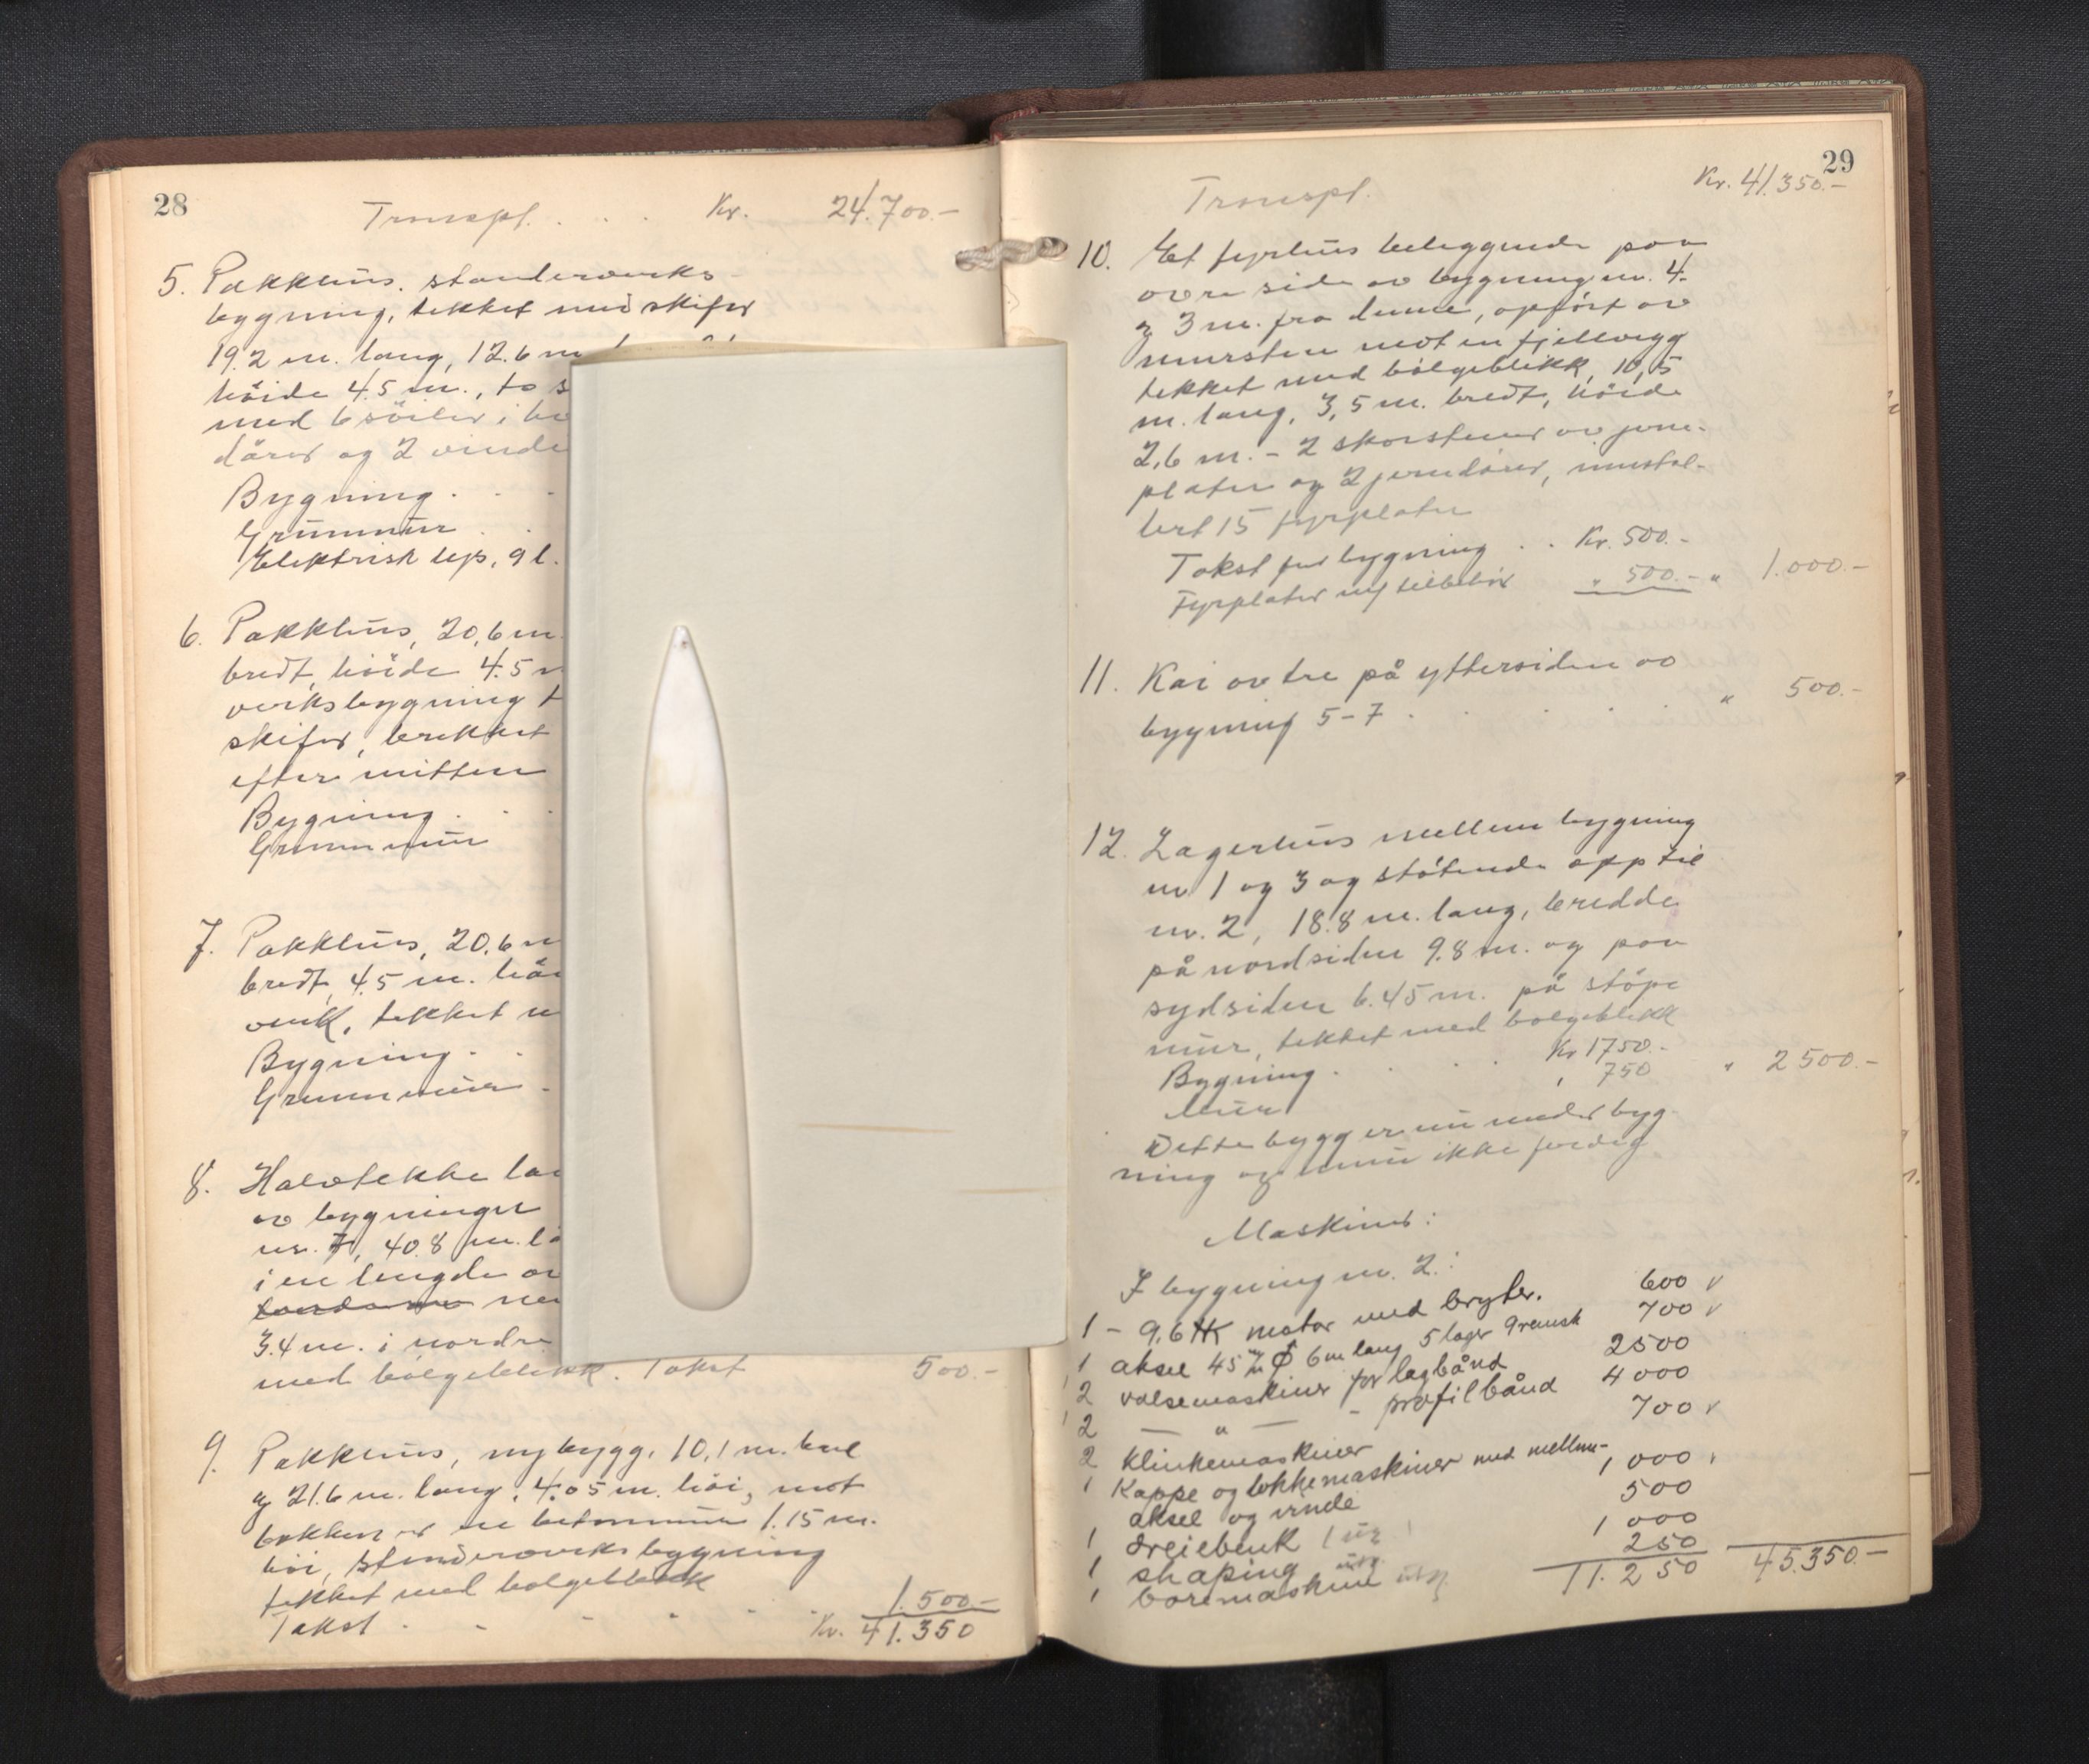 28
Transpt. . . Kr. 24.700.-
5. Pakkhus, standerverks-
bygning, tekket med skifer
19.2 m. lang, 12.6 m
höide 4.5 m., to s
med 6 söiler i
dörer og 2 vinde
Bygning . . -
Grunnmur . .
Elektrisk lys, 9 l.
6. Pakkhus, 20,6 m.
bredt, höide 4.5 m
verksbygning t
skifer, brekket
efter mitten
Bygning . . -
Grunnmur
7. Pakkhus, 20,6 m
bredt, 4.5 m. höi
verk, tekket m
Bygning . .
Grunnmur -
8. Halvtekke la
av bygninger
nr. 7, 40.8 m. l
i en lengde av
3.4 m. i nordre
med bölgeblikk. Takst 500.-
9. Pakkhus, nybygg, 10,1 m. bred
og 21.6 m. lang, 4.05 m. höi, mot
bakken er en betonmur 1.15 m.
höi, standerverksbygning
tekket med bölgeblikk
Takst . - - - - 1.500.-
Kr. 41.350
29
Transpt. Kr. 41.350.-
10. Et fyrhus beliggende paa
øvre side av bygning nr. 4.
og 3 m. fra denne, opfört av
mursten mot en fjellvegg
tekket med bölgeblikk, 10,5
m. lang, 3,5 m. bredt, höide
2,6 m. - 2 skorstener av jern-
plater og 2 jerndörer, innstal-
lert 15 fyrplater
Takst for bygning . . Kr. 500.-
Fyrplater m/ tilbehör " 500.- " 1.000.-
11. Kai av tre på yttersiden av
bygning 5-7 . . . . . " 500.-
12. Lagerhus mellem bygning
nr. 1 og 3 og stötende opp til
nr. 2, 18.8 m. lang, bredde
på nordsiden 9.8 m. og paa
sydsiden 6.45 m. på stöpe
mur, tekket med bölgeblikk
Bygning . . . . Kr 1750.-
Mur " 750 " 2500.-
Dette bygg er nu under byg-
ning og ennu ikke ferdig.
Maskiner:
I bygning nr. 2.:
1 - 9,6 HK motor med bryter. 600 v
1 aksel 45 m/m Ø 6 m lang 5 lager 9 remsk 700 v
2 valsemaskiner for lagbånd 2500
2 — " — - profilbånd 4000
2 klinkemaskiner 700 v
1 Kappe og lokkemaskiner med mellem-
aksel og vende 1000
1 dreiebenk 500
1 shaping 1000
1 boremaskin 250
11.250 45.350.-